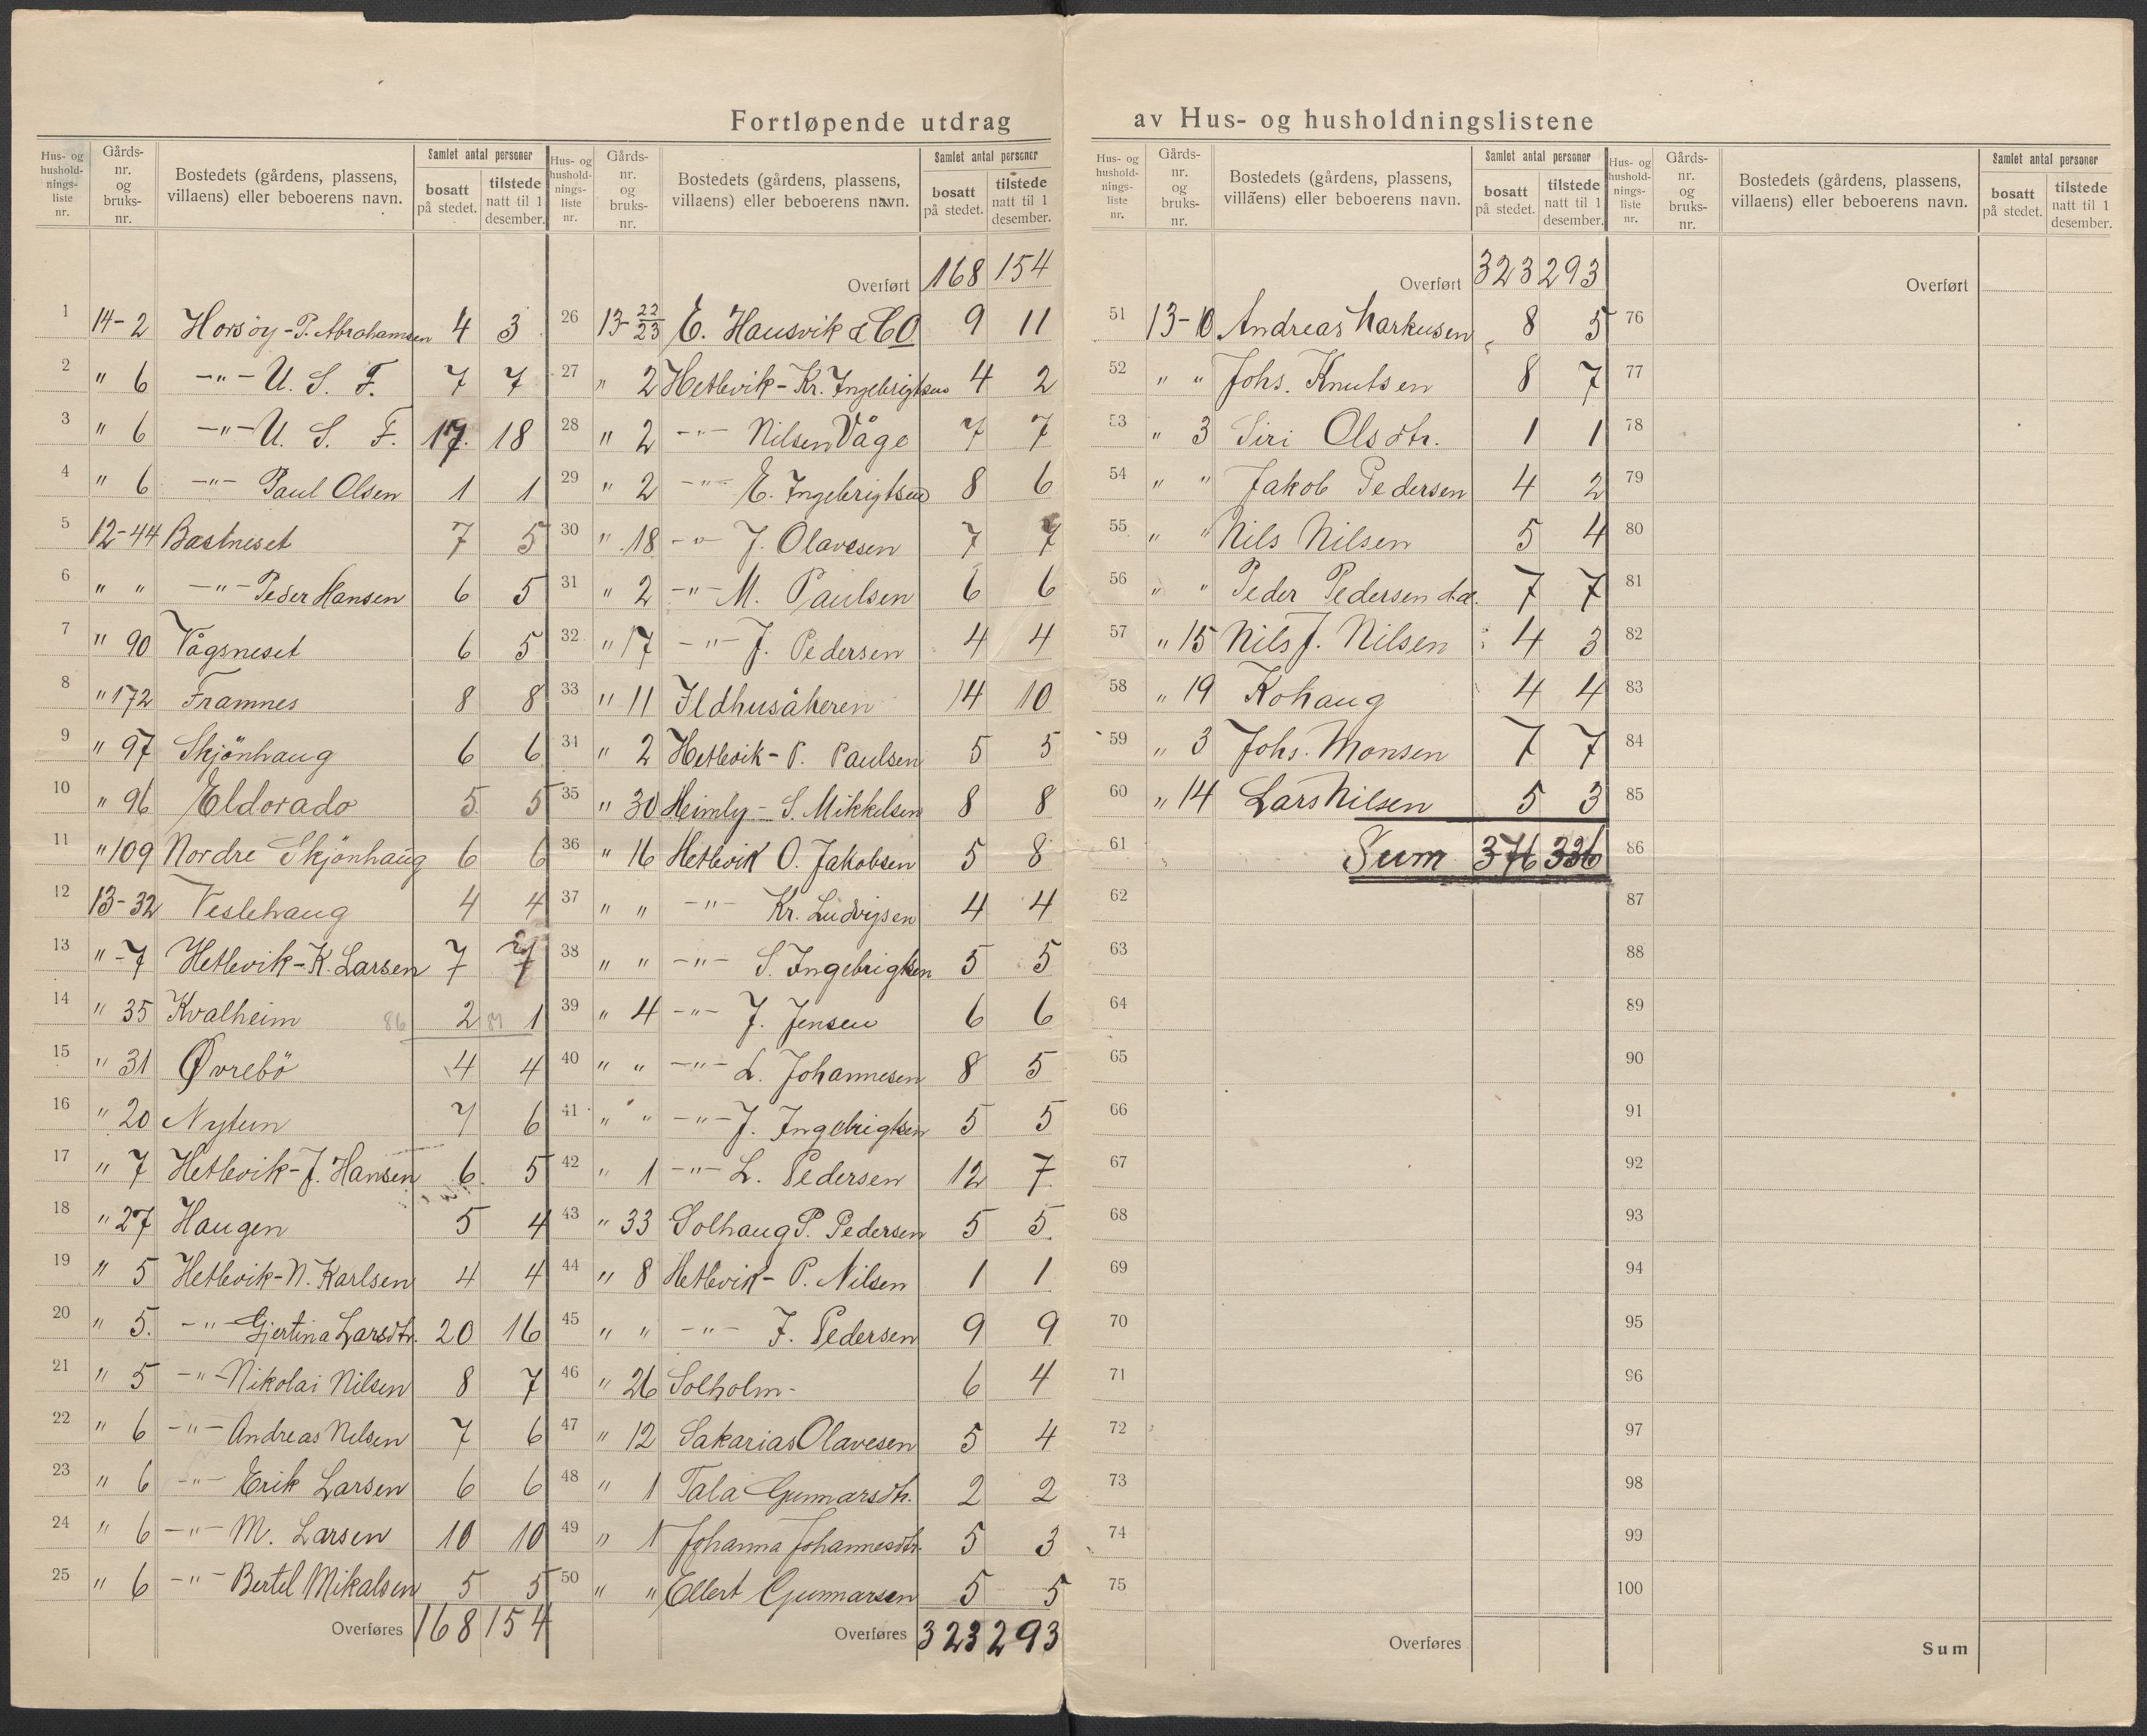 Fortløpende utdrag av Hus- og husholdningslistene
Hus- og husholdnings-liste nr. | Gårds-nr. og bruks-nr. | Bostedets (gårdens, plassens, villaens) eller beboerens navn. | Samlet antal personer | bosatt på stedet. | tilstede natt til 1 desember.
1 14-2 Horsöy - P. Abrahamsen 4 3
2 " 6 -"- U. S. F. 7 7
3 " 6 -"- U. S. F. 17 18
4 " 6 -"- Paul Olsen 1 1
5 12-44 Bastneset 7 5
6 " " -"- Peder Hansen 6 5
7 " 90 Vågsneset 6 5
8 " 172 Framnes 8 8
9 " 97 Skjönhaug 6 6
10 " 96 Eldorado 5 5
11 " 109 Nordre Skjönhaug 6 6
12 13-32 Veslehaug 4 4
13 " - 7 Hetlevik - K. Larsen 7 7
14 " 35 Kvalheim 86 2 81 1
15 " 31 Øvrebö 4 4
16 " 20 Nytun 7 6
17 " 7 Hetlevik - J. Hansen 6 5
18 " 27 Haugen 5 4
19 " 5 Hetlevik - N. Karlsen 4 4
20 " 5. -"- Gjertina Larsdtr. 20 16
21 " 5 -"- Nikolai Nilsen 8 7
22 " 6 -"- Andreas Nilsen 7 6
23 " 6 -"- Erik Larsen 6 6
24 " 6 -"- M. Larsen 10 10
25 " 6 -"- Bertel Mikalsen 5 5
Overføres 168 154
Hus- og husholdnings-liste nr. | Gårds-nr. og bruks-nr. | Bostedets (gårdens, plassens, villaens) eller beboerens navn. | Samlet antal personer | bosatt på stedet. | tilstede natt til 1 desember.
Overført 168 154
26 13-22/23 E. Hausvik & Co 9 11
27 " 2 Hetlevik - Kr. Ingebrigtsen 4 2
28 " 2 -"- Nilsen Våge 7 7
29 " 2 -"- E. Ingebrigtsen 8 6
30 " 18 -"- J. Olavesen 7 7
31 " 2 -"- M. Paulsen 6 6
32 " 17 -"- J. Pedersen 4 4
33 " 11 Ildhusåkeren 14 10
34 " 2 Hetlevik - P. Paulsen 5 5
35 " 30 Heimly - S. Mikkelsen 8 8
36 " 16 Hetlevik O. Jakobsen 5 8
37 " " -"- Kr. Ludvigsen 4 4
38 " " -"- S. Ingebrigtsen 5 5
39 " 4 -"- J. Jensen 6 6
40 " " -"- L. Johannesen 8 5
41 " " -"- J. Ingebrigtsen 5 5
42 " 1 -"- L. Pedersen 12 7
43 " 33 Solhaug P. Pedersen 5 5
44 " 8 Hetlevik - P. Nilsen 1 1
45 " " -"- J. Pedersen 9 9
46 " 26 Solholm - 6 4
47 " 12 Sakarias Olavesen 5 4
48 " 1 Tala Gunnarsdtr. 2 2
49 " 1 Johanna Johannesdtr. 5 3
50 " " Ellert Gunnarsen 5 5
Overføres 323 293
Hus- og husholdnings-liste nr. | Gårds-nr. og bruks-nr. | Bostedets (gårdens, plassens, villaens) eller beboerens navn. | Samlet antal personer | bosatt på stedet. | tilstede natt til 1 desember.
Overført 323 293
51 13-10 Andreas Markusen 8 5
52 " " Johs. Knutsen 8 7
53 " 3 Siri Olsdtr. 1 1
54 " " Jakob Pedersen 4 2
55 " " Nils Nilsen 5 4
56 " " Peder Pedersen d.æ. 7 7
57 " 15 Nils J. Nilsen 4 3
58 " 19 Kohaug 4 4
59 " 3 Johs. Monsen 7 7
60 " 14 Lars Nilsen 5 3
61 Sum 376 336
62
63
64
65
66
67
68
69
70
71
72
73
74
75
Overføres
Hus- og husholdnings-liste nr. | Gårds-nr. og bruks-nr. | Bostedets (gårdens, plassens, villaens) eller beboerens navn. | Samlet antal personer | bosatt på stedet. | tilstede natt til 1 desember.
Overført
76
77
78
79
80
81
82
83
84
85
86
87
88
89
90
91
92
93
94
95
96
97
98
99
100
Sum